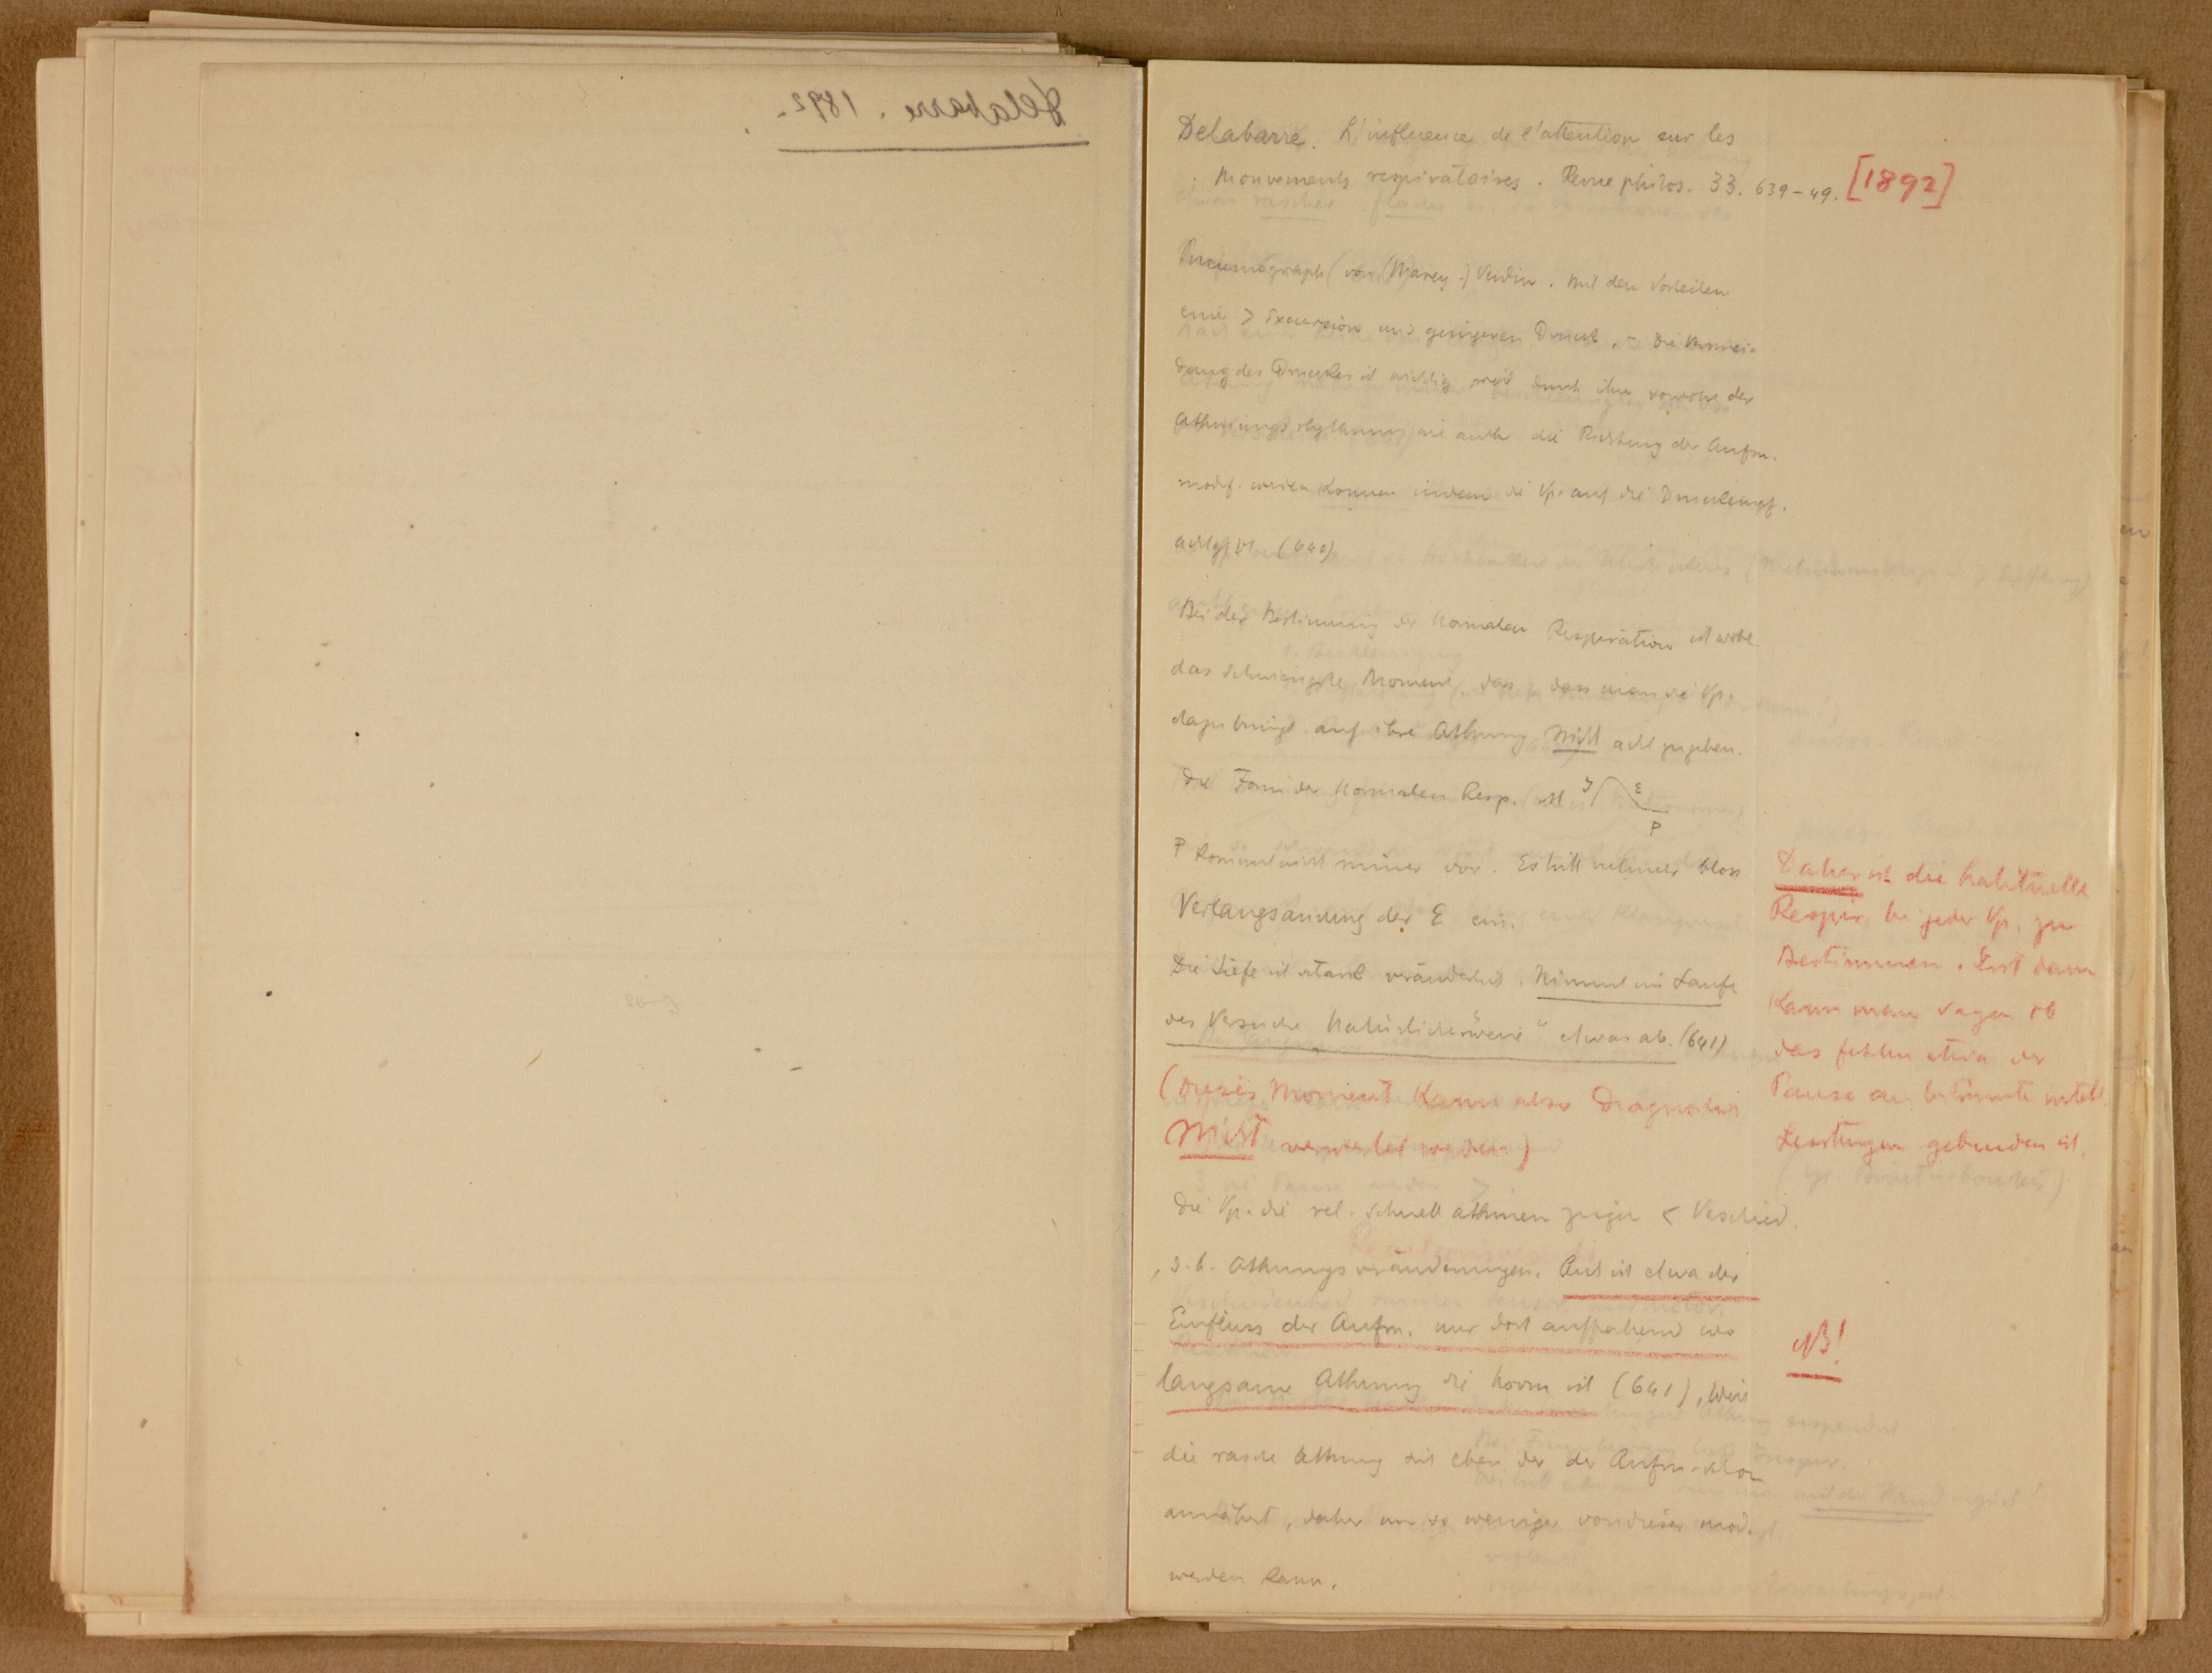 Delabarre. 1892.
Delabarre. L'influence de l'attention sur les
Mouvements respiratoires. Revue philos. 33. 639–49. [1892]
Pneumograph (von (Marey.) Verdin. Mit den Vorteilen
eine > Excursion und geringeren Druck, – die Vermei-
dung des Druckes ist wichtig weil durch ihn sowohl der
Athmungsrhythmus wie auch die Richtung der Aufm.
modif. werden können indem die Vp. auf die Druckempf.
achtgibt (640)
Bei der Bestimmung der normalen Respiration ist wohl
das schwierigste Moment, das, dass man die Vp.
dazu bringt auf ihre Athmung nicht acht zu geben.
Die Form der normalen Resp. ist J E P
P kommt nicht immer vor. Es tritt vielmehr bloss
Verlangsamung der E ein.
Die Tiefe ist stark veränderlich. Nimmt im Laufe
des Versuchs "natürlicherweise" etwas ab. (641)
(Dieses Moment kann also diagnostisch
nicht verwertet werden)
Die Vp. die rel. schnell athmen zeigen < Verschied.
d. h. Athmungsveränderungen. Auch ist etwa der
Einfluss der Aufm. nur dort auffallend wo
langsame Athmung die Norm ist (641), weil
die rasche Athmung sich eben der der Aufm. schon
annähert, daher um so weniger von dieser mod.
werden kann.
Daher ist die habituelle
Respir. bei jeder Vp. zu
Bestimmen. Erst dann
kann man sagen ob
das fehlen etwa der
Pause an bestimmte intell.
Leistungen gebunden ist.
NB!